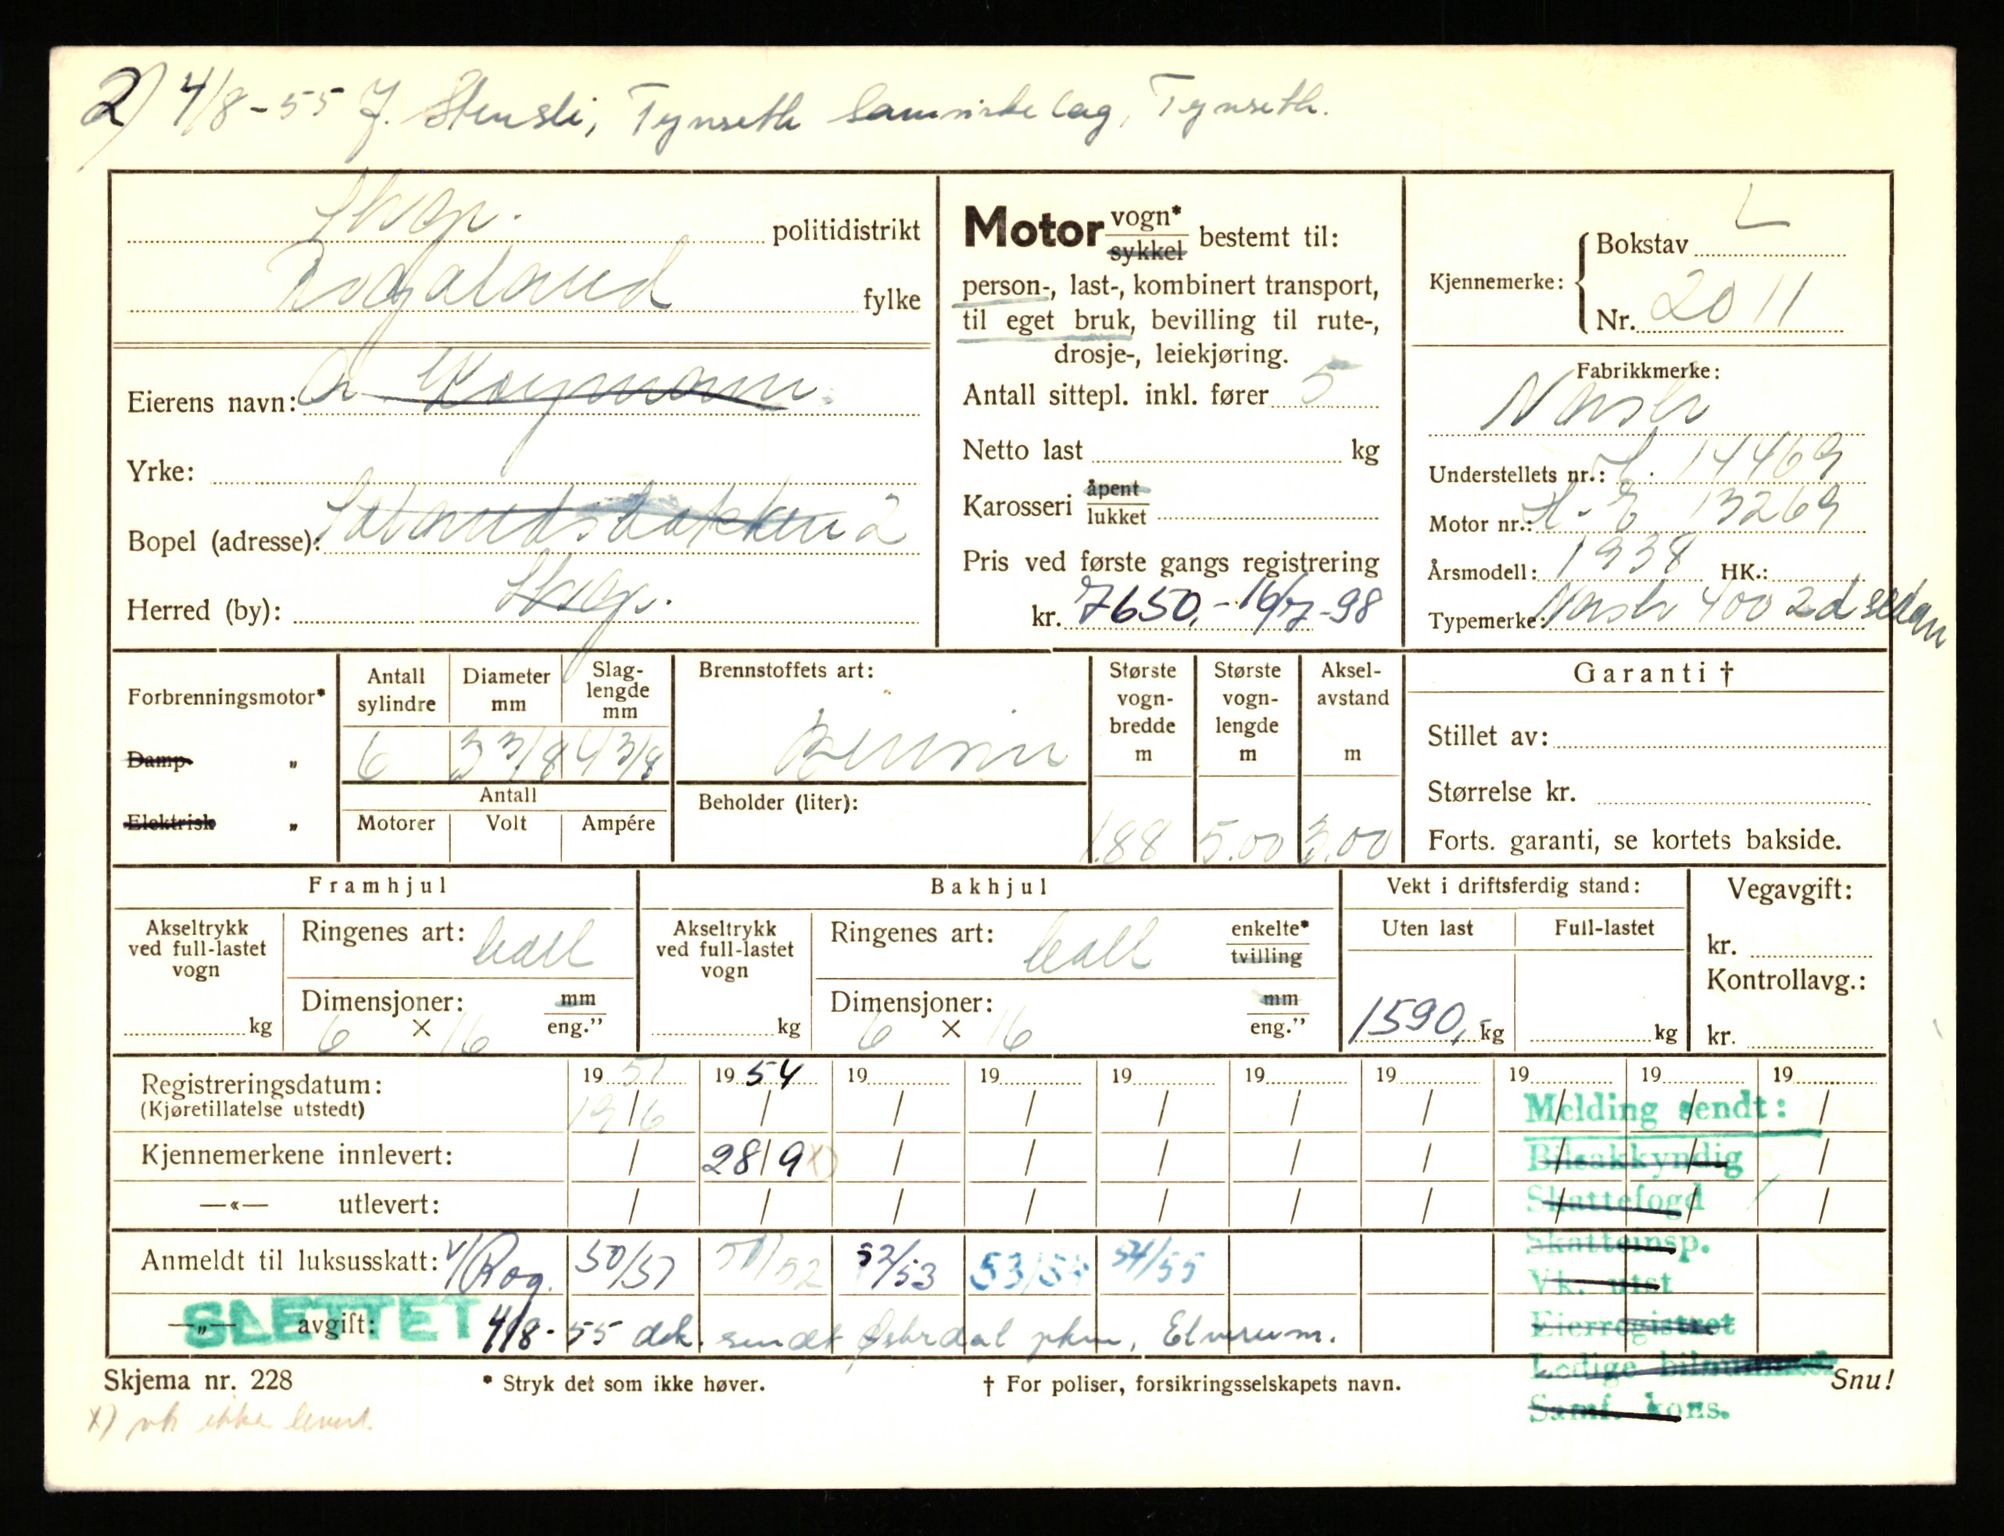 2) 4/8-55 J. Stensli, Tynseth Samvirkelag, Tynseth.
Stvgr. politidistrikt
Rogaland fylke
Eierens navn: A.
Yrke:
Bopel (adresse): 2
Herred (by): Stvgr.
Motor vogn* sykkel bestemt til:
person-, last-, kombinert transport,
til eget bruk, bevilling til rute-,
drosje-, leiekjøring.
Antall sittepl. inkl. fører 5
Netto last kg
Karosseri åpent lukket
Pris ved første gangs registrering
kr. 7650,- 16/7-98
Kjennemerke: Bokstav L
Nr. 2011
Fabrikkmerke:
Nash
Understellets nr.: H. 14469
Motor nr.: H-E 13269
Årsmodell: 1938 HK.:
Typemerke: Nash 400 2d sedan
Forbrenningsmotor*
Damp "
Elektrisk "
Antall sylindre
6
Diameter mm
3 3/8
Slaglengde mm
4 3/8
Antall
Motorer Volt Ampére
Brennstoffets art:
Bensin
Beholder (liter):
Største vognbredde m
1.88
Største vognlengde m
5.00
Akselavstand m
3.00
Garanti †
Stillet av:
Størrelse kr.
Forts. garanti, se kortets bakside.
Framhjul
Akseltrykk ved full-lastet vogn
kg
Ringenes art: ball
Dimensjoner: mm eng."
6 × 16
Bakhjul
Akseltrykk ved full-lastet vogn
kg
Ringenes art: ball enkelte* tvilling
Dimensjoner: mm eng."
6 × 16
Vekt i driftsferdig stand:
Uten last Full-lastet
1590,- kg kg
Vegavgift:
kr.
Kontrollavg.:
kr.
Registreringsdatum: 19 51 19 54 19 19 19 19 19 19 19 19
(Kjøretillatelse utstedt) 19/6 / / / / / / / / /
Kjennemerkene innlevert: / 28/9 x) / / / / / / / /
—«— utlevert: / / / / / / / / / /
Anmeldt til luksusskatt: v/Rog. 50/51 51/52 52/53 53/54 54/55
—„— avgift: 4/8-55 dek. sendt Østerdal pkm, Elverum.
SLETTET
Melding sendt:
Bilsakkyndig
Skattefogd
Skatteinsp.
Vk. utst
Eierregistret
Ledige bilnummer
Samf. kons.
Skjema nr. 228 * Stryk det som ikke høver. † For poliser, forsikringsselskapets navn. Snu!
x) vk ikke levert